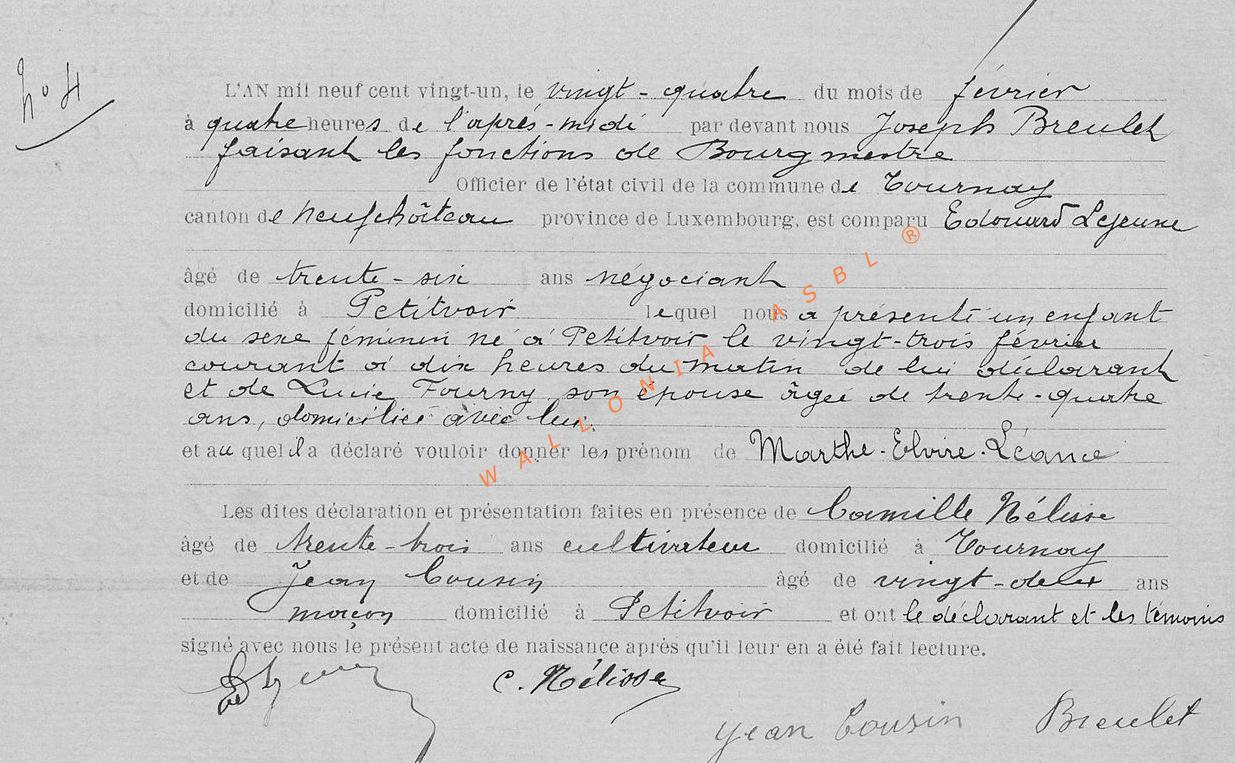 N° 4
L'AN mil neuf cent vingt-un, le vingt-quatre du mois de février
à quatre heures de l'après-midi par devant nous Joseph Breulet
faisant les fonctions de Bourgmestre
Officier de l'état civil de la commune de Tournay
canton de Neufchâteau province de Luxembourg, est comparu Edouard Lejeune
âgé de trente-six ans négociant
domicilié à Petitvoir lequel nous a présenté un enfant
du sexe féminin né à Petitvoir le vingt-trois février
courant à dix heures du matin de lui déclarant
et de Lucie Fourny son épouse âgée de trente-quatre
ans, domiciliée avec lui.
et au quel il a déclaré vouloir donner les prénom de Marthe-Elvire-Léance
WALLONIA ASBL ®
Les dites déclaration et présentation faites en présence de Camille Nélisse
âgé de trente-trois ans cultivateur domicilié à Tournay
et de Jean Cousin âgé de vingt-deux ans
maçon domicilié à Petitvoir et ont le déclarant et les témoins
signé avec nous le présent acte de naissance après qu'il leur en a été fait lecture.
C. Nélisse
Jean Cousin Breulet